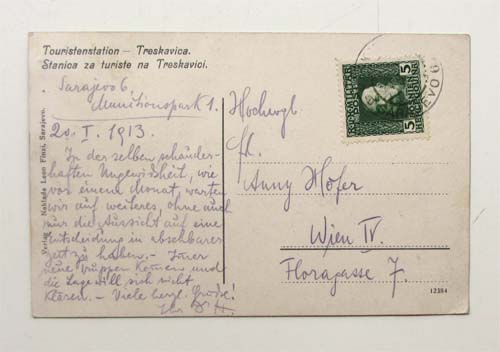 Touristenstation – Treskavica.
Stanica za turiste na Treskavici.
Sarajevo 6
Munitionspark 1.
20. I. 1913.
In der selben schauder-
haften Ungewißheit, wie
vor einem Monat, warten
wir auf weiteres, ohne auch
nur die Aussicht auf eine
Entscheidung in absehbarer
Zeit zu haben. –
neue Truppen kommen und
die Lage will sich nicht
klären. – Viele herzl. Grüße!
Ihr
Hochwgb
Frl.
Anny Hofer
Wien IV.
Floragasse 7.
5
5
12384
Verlag – Naklada Leon Finzi, Sarajevo.